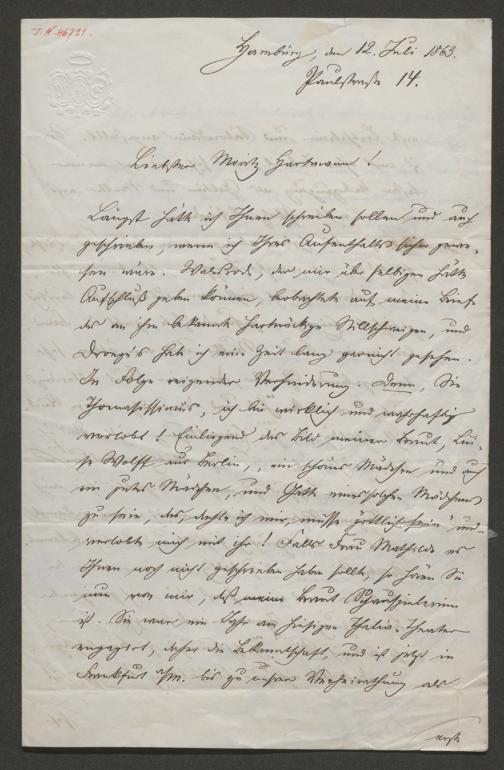 I. N. 46721.
Hamburg, den 12. Juli 1863.
Paulstraße 14.
Liebster Moritz Hartmann!
Längst hätte ich Ihnen schreiben sollen, und auch
geschrieben, wenn ich Ihres Aufenthalts sicher gewe-
sen wäre. Walesrode, der mir über selbigen hätte
Aufschluß geben können, beobachtete auf meine Briefe
das an ihm bekannte hartnäckige Stillschweigen, und
hab ich eine Zeit lang garnicht gesehen.
In Folge Verhinderung. Denn, Sie
ich bin wirklich und wahrhaftig
verlobt! Einliegend das Bild meiner Braut, Lui-
se Wolff aus Berlin, ein schönes Mädchen und auch
ein gutes Mädchen, und Gatte eines solchen Mädchens
zu sein, das, dachte ich mir, müsse göttlich sein und
verlobte mich mit ihr! Falls Frau Mathilde es
Ihnen noch nicht geschrieben haben sollte, so hören Sie
nun von mir, daß meine Braut Schauspielerin
ist. Sie war ein Jahr am hiesigen Thalia-Theater
engagirt, daher die Bekanntschaft, und ist jetzt in
Frankfurt a/M. bis zu unsrer Verheirathung als
erste